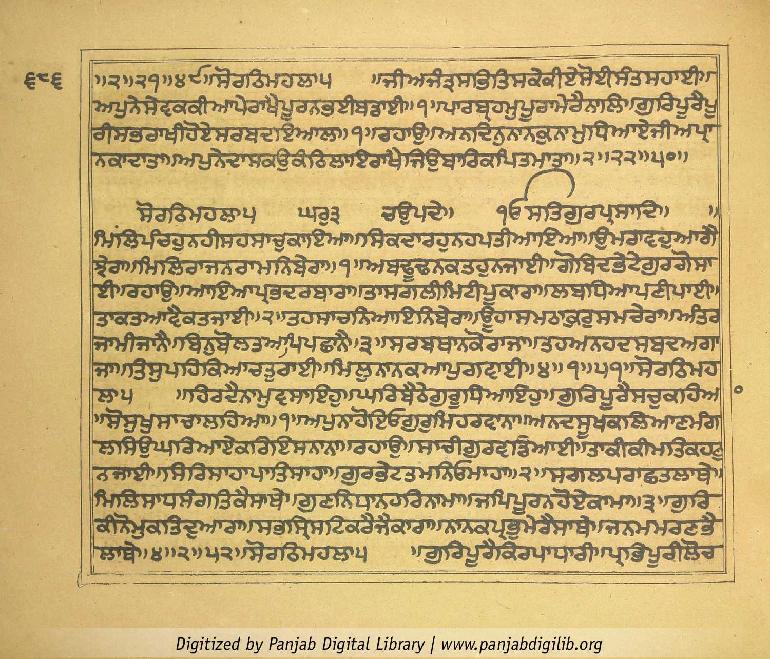 ੬੮੬
॥੨॥੨੧॥੪੯॥ਸੋਰਠਿਮਹਲਾ੫ ॥ਜੀਅਜੰਤ੍ਰਸਭਿਤਿਸਕੇਕੀਏਸੋਈਸੰਤਸਹਾਈ॥
ਅਪੁਨੇਸੇਵਕਕੀਆਪੇਰਾਖੈਪੂਰਨਭਈਬਡਾਈ॥੧॥ਪਾਰਬ੍ਰਹਮੁਪੂਰਾਮੇਰੈਨਾਲਿ॥ਗੁਰਿਪੂਰੈਪੂ
ਰੀਸਭਰਾਖੀਹੋਏਸਰਬਦਇਆਲਾ॥੧॥ਰਹਾਉ॥ਅਨਦਿਨੁਨਾਨਕੁਨਾਮੁਧਿਆਏਜੀਅਪ੍ਰਾ
ਨਕਾਦਾਤਾ॥ਅਪੁਨੇਦਾਸਕਉਕੰਠਿਲਾਇਰਾਖੈਜਿਉਬਾਰਿਕਪਿਤਮਾਤਾ॥੨॥੨੨॥੫੦॥
ਸੋਰਠਿਮਹਲਾ੫ ਘਰੁ੩ ਚਉਪਦੇ॥ ੴਸਤਿਗੁਰਪ੍ਰਸਾਦਿ॥ ॥
ਮਿਲਿਪੰਚਹੁਨਹੀਸਹਸਾਚੁਕਾਇਆ॥ਸਿਕਦਾਰਹੁਨਹਪਤੀਆਇਆ॥ਉਮਰਾਵਹੁਆਗੈ
ਝੇਰਾ॥ਮਿਲਿਰਾਜਨਰਾਮਨਿਬੇਰਾ॥੧॥ਅਬਢੂਢਨਕਤਹੁਨਜਾਈ॥ਗੋਬਿਦਭੇਟੇਗੁਰਗੋਸਾ
ਈ॥ਰਹਾਉ॥ਆਇਆਪ੍ਰਭਦਰਬਾਰਾ॥ਤਾਸਗਲੀਮਿਟੀਪੂਕਾਰਾ॥ਲਬਧਿਆਪਣੀਪਾਈ॥
ਤਾਕਤਆਵੈਕਤਜਾਈ॥੨॥ਤਹਸਾਚਨਿਆਇਨਿਬੇਰਾ॥ਊਹਾਸਮਠਾਕੁਰੁਸਮਚੇਰਾ॥ਅੰਤਰ
ਜਾਮੀਜਾਨੈ॥ਬਿਨੁਬੋਲਤਆਪਿਪਛਾਨੈ॥੩॥ਸਰਬਥਾਨਕੋਰਾਜਾ॥ਤਹਅਨਹਦਸਬਦਅਗਾ
ਜਾ॥ਤਿਸੁਪਹਿਕਿਆਚਤੁਰਾਈ॥ਮਿਲੁਨਾਨਕਆਪੁਗਵਾਈ॥੪॥੧॥੫੧॥ਸੋਰਠਿਮਹ
ਲਾ੫ ॥ਹਿਰਦੈਨਾਮੁਵਸਾਇਹੁ॥ਘਰਿਬੈਠੇਗੁਰੂਧਿਆਇਹੁ॥ਗੁਰਿਪੂਰੈਸਚੁਕਹਿਆ
॥ਸੋਸੁਖੁਸਾਚਾਲਹਿਆ॥੧॥ਅਪੁਨਾਹੋਇਓਗੁਰੁਮਿਹਰਵਾਨਾ॥ਅਨਦਸੂਖਕਲਿਆਣਮੰਗ
ਲਸਿਉਘਰਿਆਏਕਰਿਇਸਨਾਨਾ॥ਰਹਾਉ॥ਸਾਚੀਗੁਰਵਡਿਆਈ॥ਤਾਕੀਕੀਮਤਿਕਹਣੁ
ਨਜਾਈ॥ਸਿਰਿਸਾਹਾਪਾਤਿਸਾਹਾ॥ਗੁਰਭੇਟਤਮਨਿਓਮਾਹਾ॥੨॥ਸਗਲਪਰਾਛਤਲਾਥੇ॥
ਮਿਲਿਸਾਧਸੰਗਤਿਕੈਸਾਥੇ॥ਗੁਣਨਿਧਾਨਹਰਿਨਾਮਾ॥ਜਪਿਪੂਰਨਹੋਏਕਾਮਾ॥੩॥ਗੁਰਿ
ਕੀਨੋਮੁਕਤਿਦੁਆਰਾ॥ਸਭਸ੍ਰਿਸਟਿਕਰੈਜੈਕਾਰਾ॥ਨਾਨਕਪ੍ਰਭੁਮੇਰੈਸਾਥੇ॥ਜਨਮਮਰਣਭੈ
ਲਾਥੇ॥੪॥੨॥੫੨॥ਸੋਰਠਿਮਹਲਾ੫ ॥ਗੁਰਿਪੂਰੈਕਿਰਪਾਧਾਰੀ॥ਪ੍ਰਭਿਪੂਰੀਲੋਚ
Digitized by Panjab Digital Library | www.panjabdigilib.org